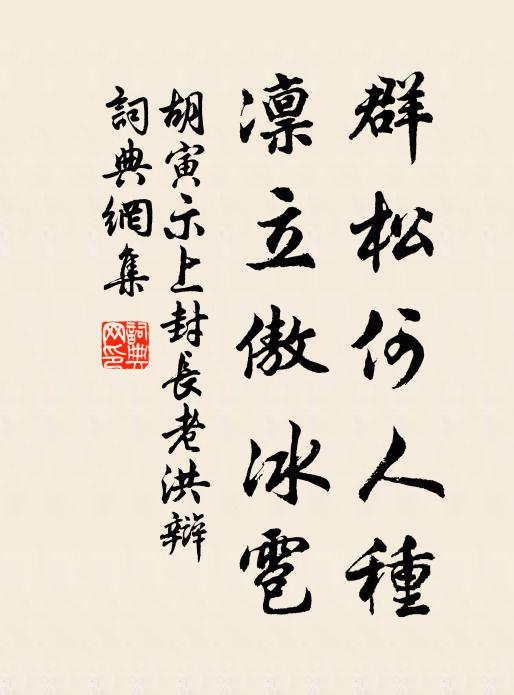 群松何人種
凛立傲冰雹
胡寅示上封長老洪辯
詞典網集
詞典
网印